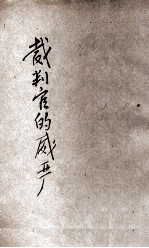 裁判官的威严